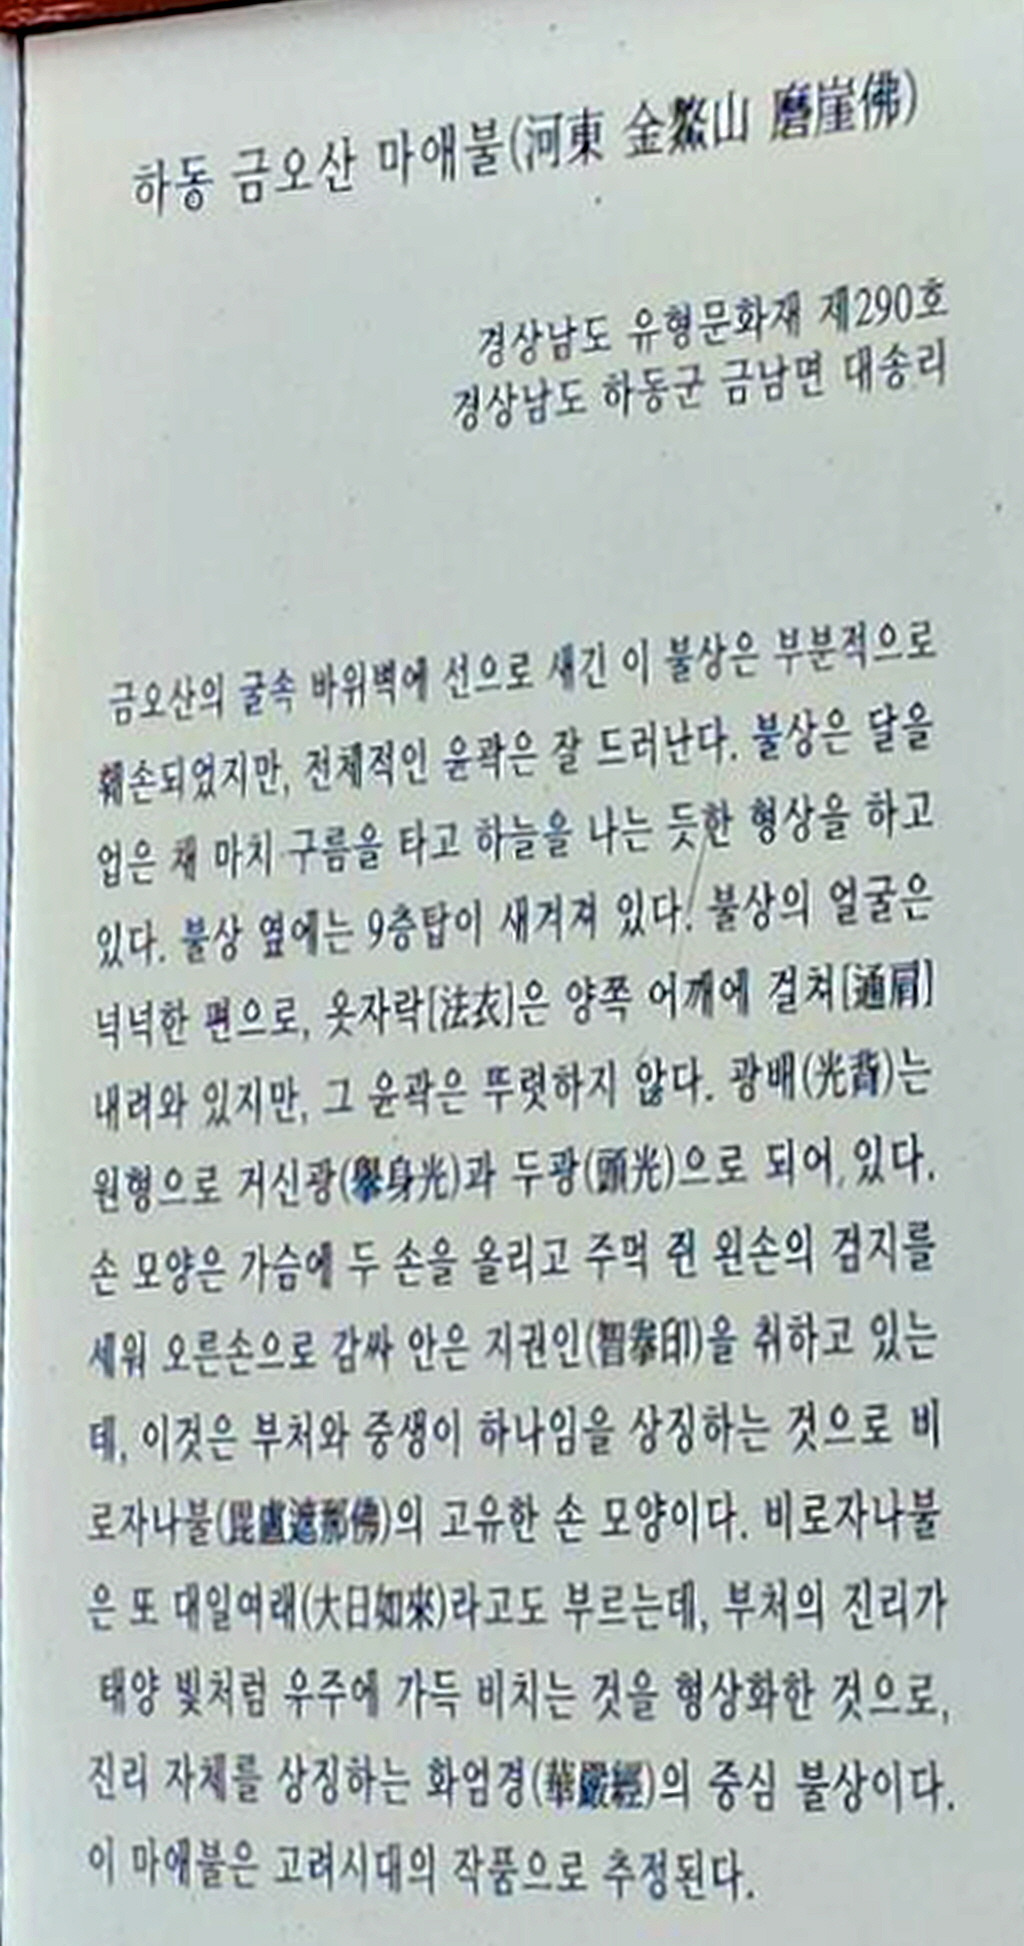 하동 금오산 마애불(河東 金鰲山 磨崖佛)
경상남도 유형문화재 제290호
경상남도 하동군 금남면 대송리
금오산의 굴속 바위벽에 선으로 새긴 이 불상은 부분적으로
훼손되었지만, 전체적인 윤곽은 잘 드러난다. 불상은 달을
업은 채 마치 구름을 타고 하늘을 나는 듯한 형상을 하고
있다. 불상 옆에는 9층탑이 새겨져 있다. 불상의 얼굴은
넉넉한 편으로, 옷자락[法衣]은 양쪽 어깨에 걸쳐[通肩]
내려와 있지만, 그 윤곽은 뚜렷하지 않다. 광배(光背)는
원형으로 거신광(擧身光)과 두광(頭光)으로 되어 있다.
손 모양은 가슴에 두 손을 올리고 주먹 쥔 왼손의 검지를
세워 오른손으로 감싸 안은 지권인(智拳印)을 취하고 있는
데, 이것은 부처와 중생이 하나임을 상징하는 것으로 비
로자나불(毘盧遮那佛)의 고유한 손 모양이다. 비로자나불
은 또 대일여래(大日如來)라고도 부르는데, 부처의 진리가
태양 빛처럼 우주에 가득 비치는 것을 형상화한 것으로,
진리 자체를 상징하는 화엄경(華嚴經)의 중심 불상이다.
이 마애불은 고려시대의 작품으로 추정된다.